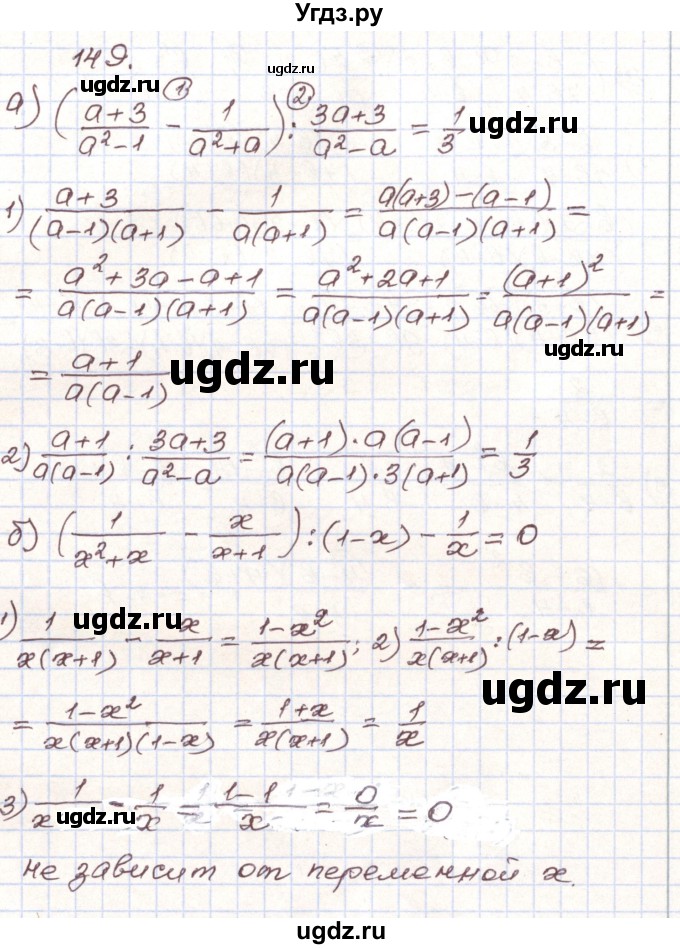 Угдз.ру
149.
а) ((a+3)/(a²-1) - 1/(a²+a)) : (3a+3)/(a²-a) = 1/3
ugdz.ru ① ugdz.ru ② ugdz.ru
1) (a+3)/((a-1)(a+1)) - 1/(a(a+1)) = (a(a+3)-(a-1))/(a(a-1)(a+1)) =
= (a²+3a-a+1)/(a(a-1)(a+1)) = (a²+2a+1)/(a(a-1)(a+1)) = (a+1)²/(a(a-1)(a+1)) =
ugdz.ru
= (a+1)/(a(a-1)) ugdz.ru
2) (a+1)/(a(a-1)) : (3a+3)/(a²-a) = ((a+1)·a(a-1))/(a(a-1)·3(a+1)) = 1/3
б) (1/(x²+x) - x/(x+1)) : (1-x) - 1/x = 0
ugdz.ru
1) 1/(x(x+1)) - x/(x+1) = (1-x²)/(x(x+1)); 2) (1-x²)/(x(x+1)) : (1-x) =
ugdz.ru
= (1-x²)/(x(x+1)(1-x)) = (1+x)/(x(x+1)) = 1/x
3) 1/x - 1/x = (1-1)/x = 0/x = 0
ugdz.ru
не зависит от переменной x.
ugdz.ru